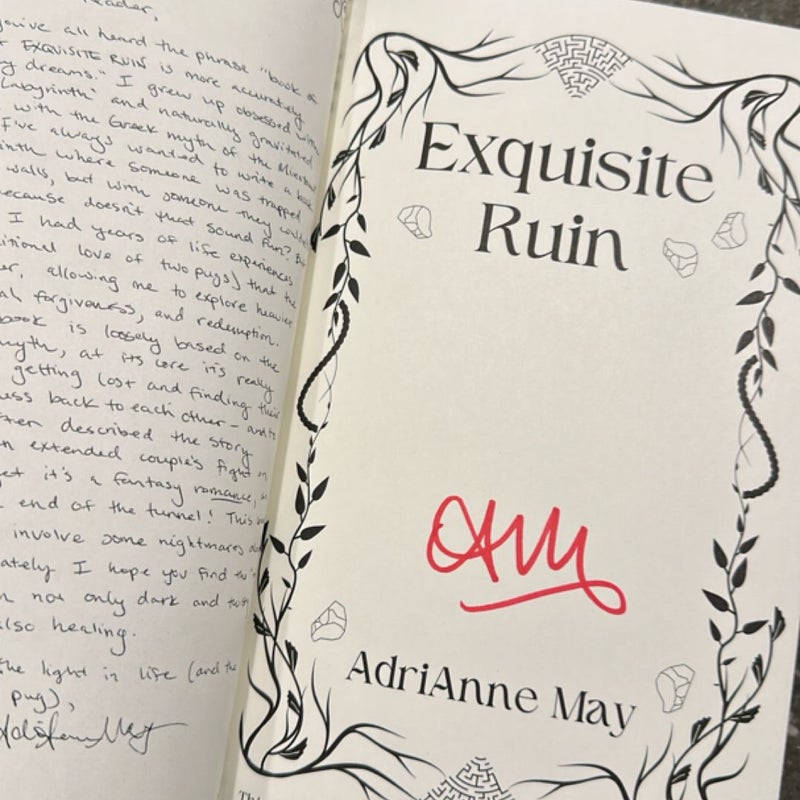 eader,
you've all heard the phrase "book of
EXQUISITE RUIN is more accurately
y dreams." I grew up obsessed with
Labyrinth and naturally gravitated
with the Greek myth of the Minotaur
I've always wanted to write a book
inth where someone was trapped
walls, but with someone they couldn't
because doesn't that sound fun? But
I had years of life experiences
itional love of two pugs) that the
er, allowing me to explore heavier
forgiveness, and redemption.
book is loosely based on the
myth, at its core it's really
getting lost and finding their
back to each other - and to
described the story
n extended couple's fight in
et it's a fantasy romance, so
end of the tunnel! This book
involve some nightmares
ately I hope you find
not only dark and
also healing.
the light in life (and the
pug),
AdriAnne May
Exquisite
Ruin
AM
AdriAnne May